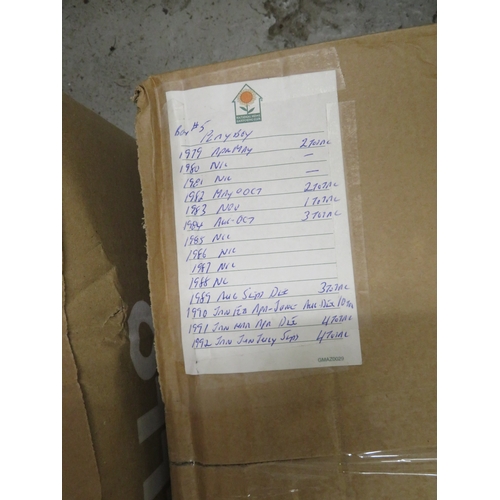 Box #5
Playboy
1979 Apr MAY 2 TOTAL
1980 NIL —
1981 NIL —
1982 MAY + OCT 2 TOTAL
1983 NOV 1 TOTAL
1984 AUG - OCT 3 TOTAL
1985 NIL
1986 NIL
1987 NIL
1988 NIL
1989 AUG Sept DEC 3 TOTAL
1990 JAN FEB APR - JUNE AUG - DEC 10 TOTAL
1991 JAN MAR APR DEC 4 TOTAL
1992 JAN JUN July Sept 4 TOTAL